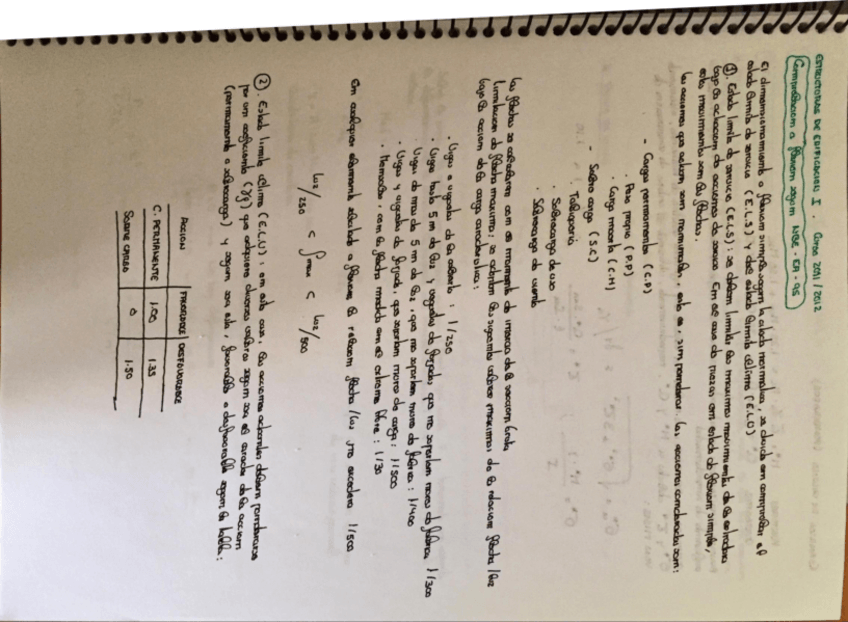 ESTRUCTURAS DE EDIFICACION I. Curso 2011/2012
Comprobacion a flexion segun NBE-EA-95
El dimensionamiento a flexion simple segun la citada normativa, se divide en comprobar el
estado limite de servicio (E.L.S) y del estado limite ultimo (E.L.U)
①. Estado limite de servicio (E.L.S): se deben limitar los maximos movimientos de la estructura
bajo la actuacion de acciones de servicio. En el caso de piezas en estado de flexion simple,
estos movimientos son las flechas.
Las acciones que actuan son nominales, esto es, sin ponderar. Las acciones consideradas son:
- Cargas permanentes (C.P)
· Peso propio (P.P)
· Carga muerta (C.M)
- Sobre carga (S.C)
Tabiqueria
· Sobrecarga de uso
· Sobrecarga de viento
Las flechas se calcularan con el momento de inercia de la seccion bruta
Limitacion de flecha maxima: se adoptan los siguientes valores maximos de la relacion flecha/luz
bajo la accion de la carga caracteristica:
· Vigas o viguetas de la cubierta: 1/250
· Vigas hasta 5 m de luz y viguetas de forjado, que no soporten muros de fabrica 1/300
· Vigas de mas de 5 m de luz, que no soporten muros de fabrica: 1/400
· Vigas y viguetas de forjado, que soporten muros de carga: 1/500
· Mensulas, con la flecha medida en el extremo libre: 1/30
En cualquier elemento solicitado a flexion la relacion flecha/luz no excedera 1/500
luz/250 < f max < luz/500
②. Estado limite ultimo (E.L.U): en este caso, las acciones actuantes deberan ponderarse
por un coeficiente (γg) que adquiere diversos valores segun sea el caracter de la accion
(permanente o sobrecarga) y segun sea esta, favorable o desfavorable segun la tabla:
ACCION FAVORABLE DESFAVORABLE
C. PERMANENTE 1.00 1.35
SOBRE CARGA 0 1.50